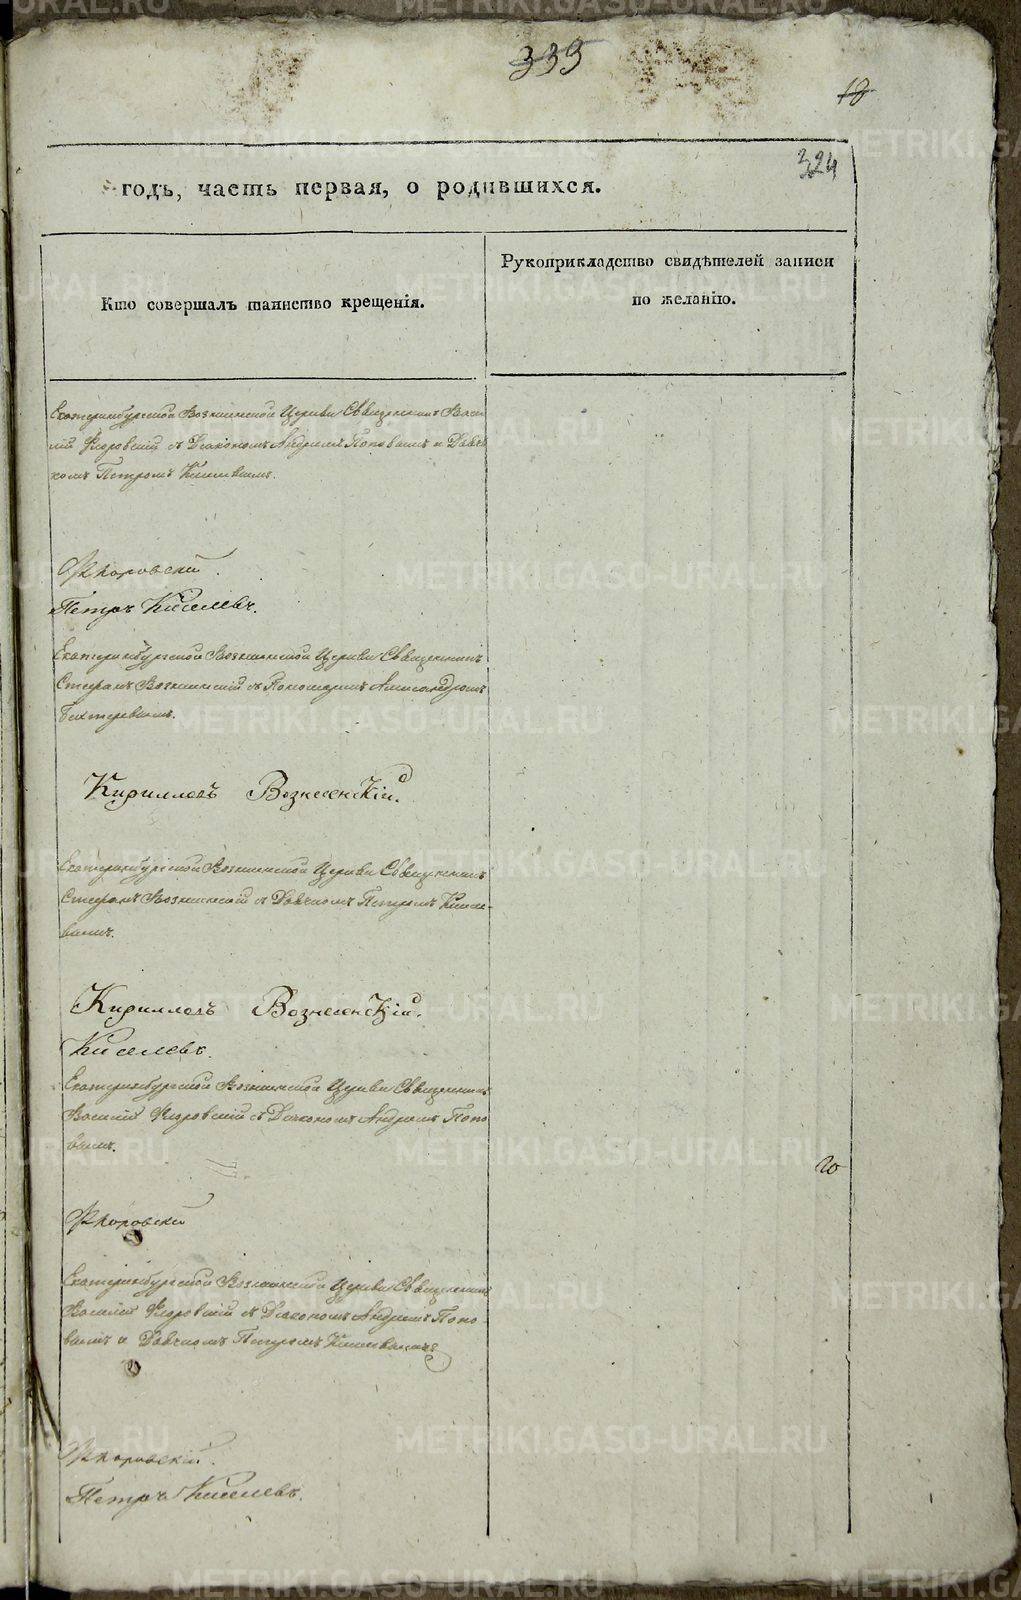 339
18
324
годъ, часть первая, о родившихся.
Кто совершалъ таинство крещенія.
Рукоприкладство свидѣтелей записи
по желанію.
Екатеринбургской Вознесенской Церкви Священникъ Васи-
лій Флоровскій съ Діакономъ Андреемъ Поповымъ и Дьяч-
комъ Петромъ Киселевымъ.
Флоровскій.
Петръ Киселевъ.
Екатеринбургской Вознесенской Церкви Священникъ
Стефанъ Вознесенскій съ Пономаремъ Александромъ
Бехтеревымъ.
Кирилловъ Вознесенскій.
Екатеринбургской Вознесенской Церкви Священникъ
Стефанъ Вознесенскій съ Дьячкомъ Петромъ Кисе-
левымъ.
Кирилловъ Вознесенскій.
Киселевъ.
Екатеринбургской Вознесенской Церкви Священникъ
Василій Флоровскій съ Діакономъ Андреемъ Попо-
вымъ.
20
Флоровскій
Екатеринбургской Вознесенской Церкви Священникъ
Василій Флоровскій съ Діакономъ Андреемъ Попо-
вымъ и Дьячкомъ Петромъ Киселевымъ
Флоровскій.
Петръ Киселевъ.
METRIKI.GASO-URAL.RU